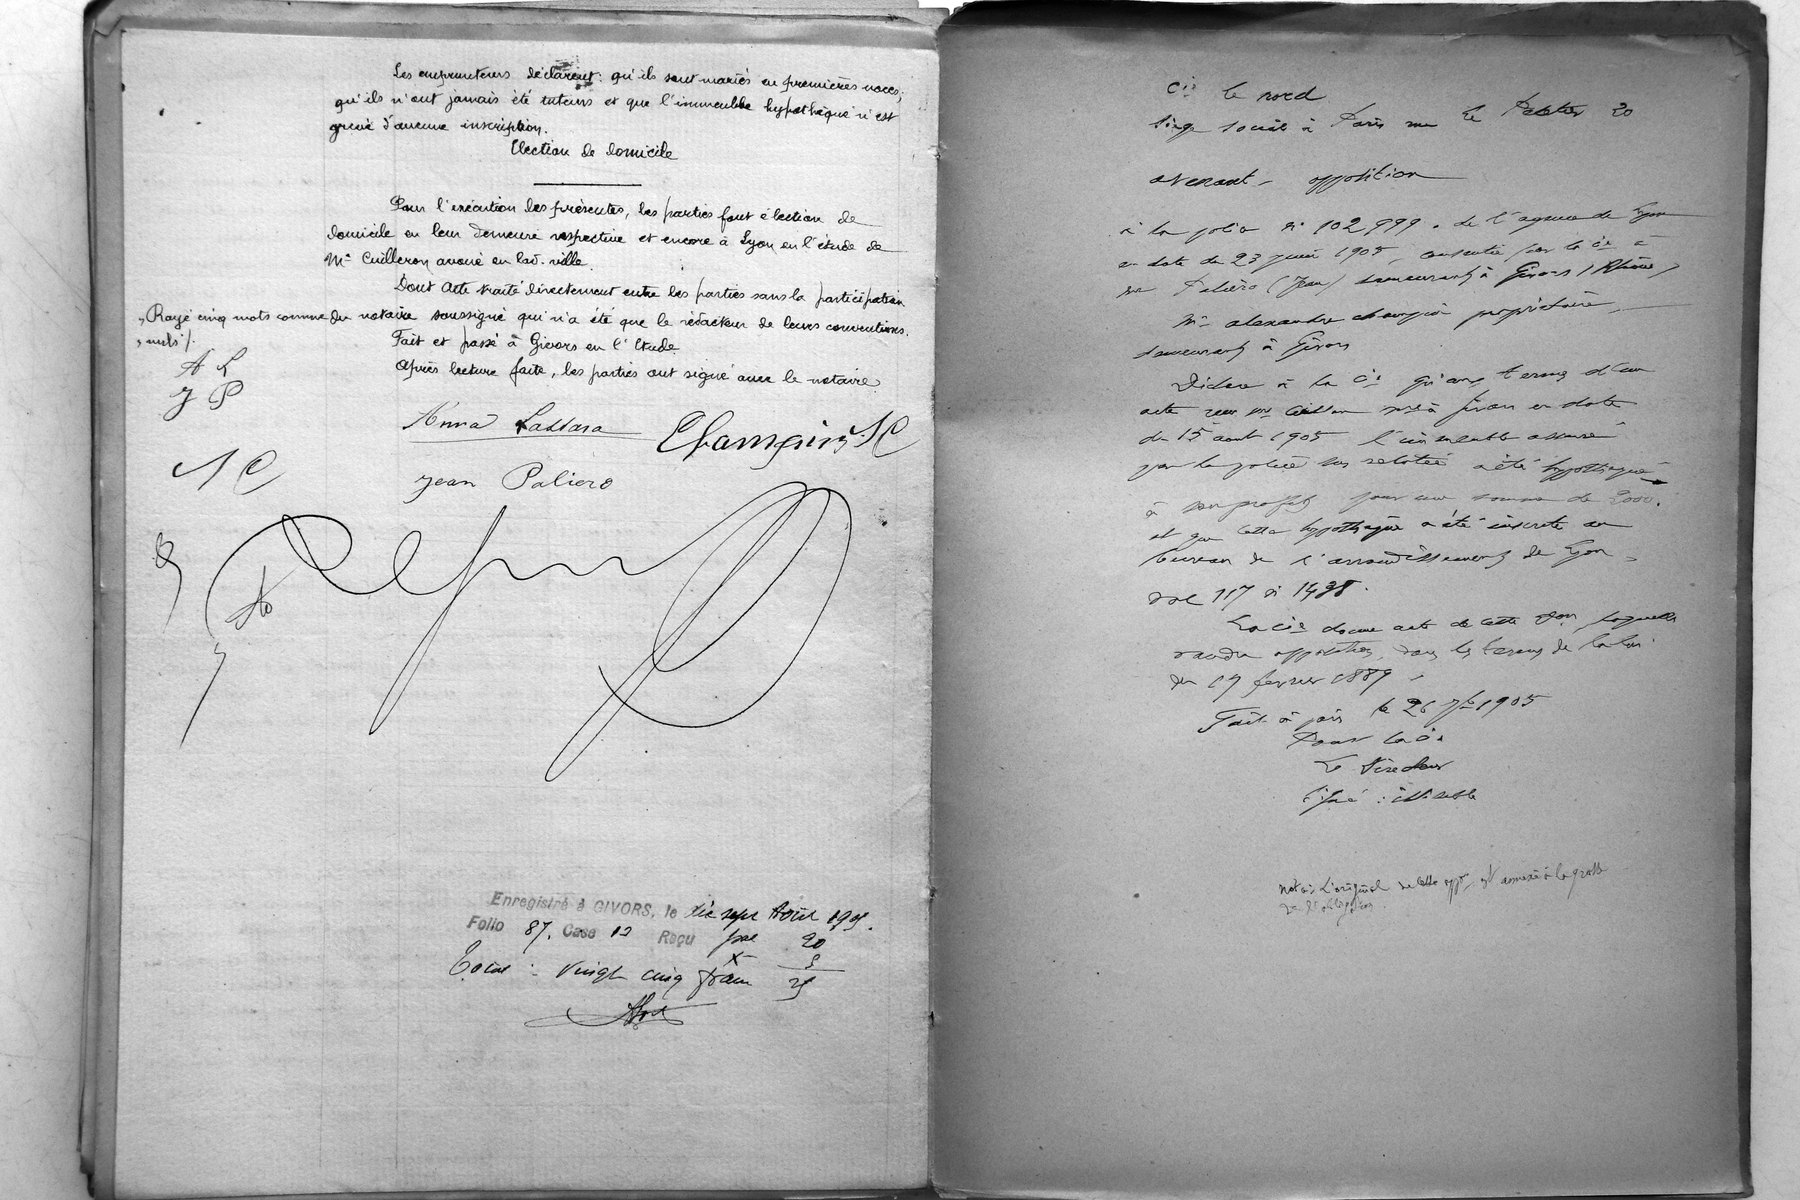 Les emprunteurs déclarent: qu'ils sont mariés en premières noces,
qu'ils n'ont jamais été tuteurs et que l'immeuble hypothéqué n'est
grevé d'aucune inscription.
Election de domicile
Pour l'exécution des présentes, les parties font élection de
domicile en leur demeure respective et encore à Lyon en l'étude de
Me Cuilleron avoué en lad. ville.
Dont Acte traité directement entre les parties sans la participation
du notaire soussigné qui n'a été que le rédacteur de leurs conventions.
Fait et passé à Givors en l'Etude.
Après lecture faite, les parties ont signé avec le notaire
Rayé cinq mots comme
nuls /.
A L
J P
Anna Lassara
Jean Paliero
Enregistré à GIVORS, le dix sept Août 1905.
Folio 87. Case 12 Reçu 20
5
Total : vingt cinq francs 25
Cie le nord
siège social à Paris rue Le 20
avenant - opposition
à la police n° 102,999 de l'agence de Lyon
en date du 23 juin 1905, consentie par la Cie à
Mr Paliéro (Jean) demeurant à Givors (Rhône)
Mr alexandre propriétaire
demeurant à Givors
Déclare à la Cie qu'aux termes d'un
acte reçu Me nre à Givors en date
du 15 août 1905 l'immeuble assuré
par la police sus relatée a été hypothéqué
à son profit pour une somme de 2000.
et que cette hypothèque a été inscrite au
bureau de l'arrondissement de Lyon
vol 117 n° 1438.
La Cie donne acte de cette laquelle
vaudra opposition, dans les termes de la loi
du 19 février 1889
Fait à paris le 26 7bre 1905
Pour la Cie
Le Directeur
Signé :
nota: L'original de cette oppon est annexé à la grosse
de l'obligation.